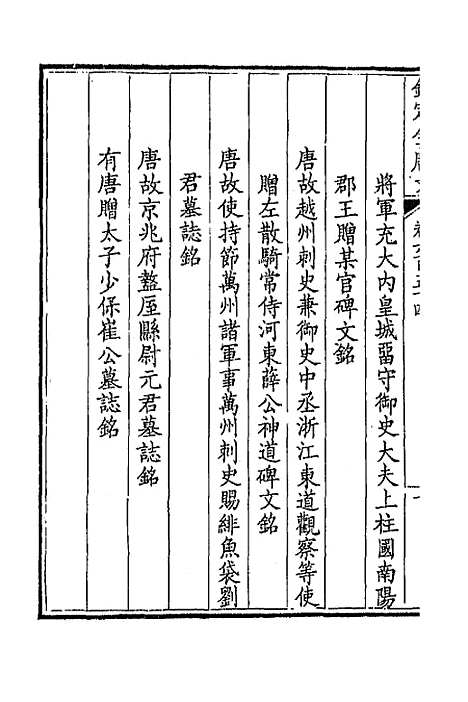 欽定全唐文
卷六百五十四
一
將軍充大內皇城留守御史大夫上柱國南陽
郡王贈某官碑文銘
唐故越州刺史兼御史中丞浙江東道觀察等使
贈左散騎常侍河東薛公神道碑文銘
唐故使持節萬州諸軍事萬州刺史賜緋魚袋劉
君墓誌銘
唐故京兆府盩厔縣尉元君墓誌銘
有唐贈太子少保崔公墓誌銘